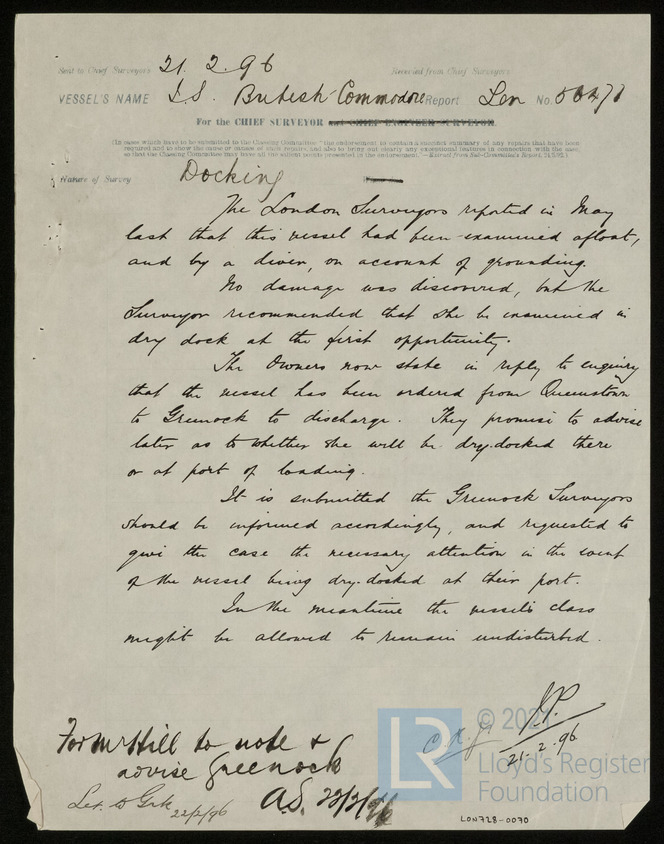 Sent to Chief Surveyors 21. 2. 96 Received from Chief Surveyors
VESSEL'S NAME I.S. British Commodore Report Lon No. 56471
For the CHIEF SURVEYOR and CHIEF ENGINEER SURVEYOR.
(In cases which have to be submitted to the Classing Committee "the endorsement to contain a succinct summary of any repairs that have been
required and to show the cause or nature of these repairs, and also to bring out clearly any exceptional features in connection with the case,
so that the Classing Committee may have all the salient points presented in the endorsement."—Extract from Sub-Committee's Report,
Nature of Survey Docking
The London Surveyors reported in May
last that this vessel had been examined afloat,
and by a diver, on account of grounding.
No damage was discovered, but the
Surveyor recommended that she be examined in
dry dock at the first opportunity.
The Owners now state in reply to enquiry
that the vessel has been ordered from Queenstown
to Greenock to discharge. They promise to advise
later as to whether she will be dry-docked there
or at port of loading.
It is submitted the Greenock Surveyors
should be informed accordingly, and requested to
give the case the necessary attention in the event
of the vessel being dry-docked at their port.
In the meantime the vessel's class
might be allowed to remain undisturbed.
J.P.
21.2.96
For Mr Hill to note &
advise Greenock
A.S. 22/2/96
Let. to Grk 22/2/96
LR
© 2021
Lloyd's Register
Foundation
LON728-0070